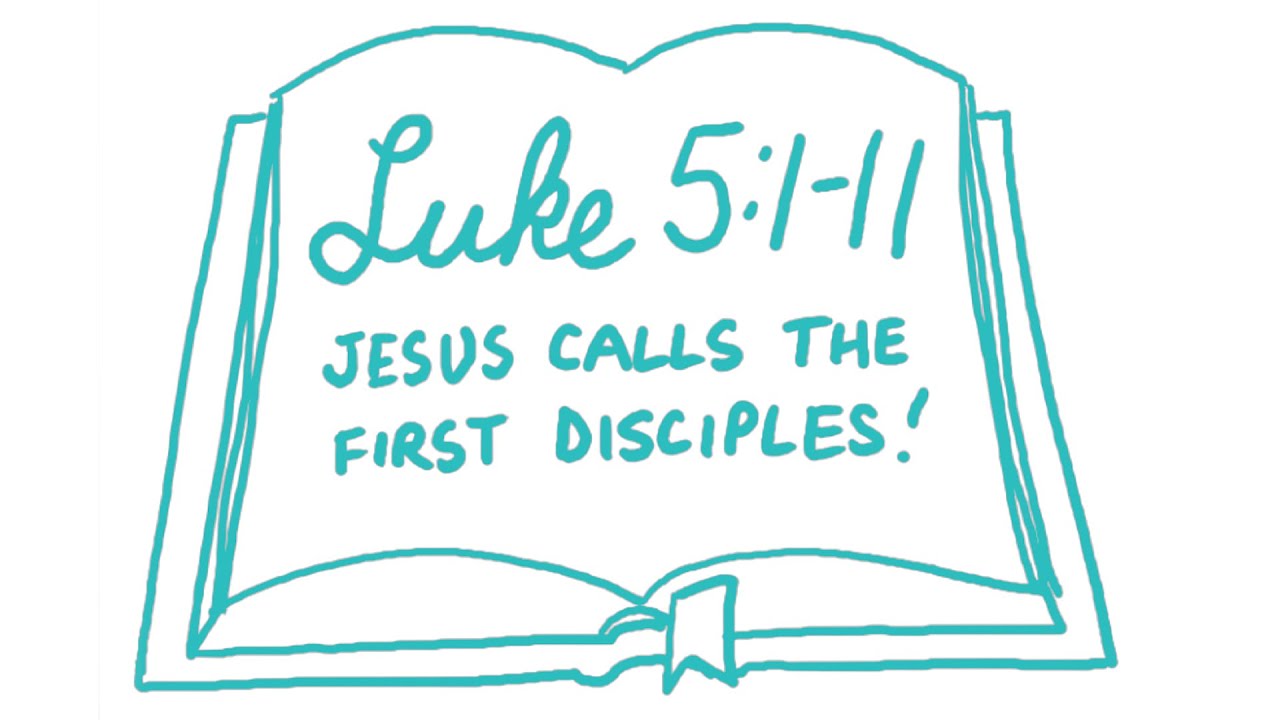 Luke 5:1-11
JESUS CALLS THE
FIRST DISCIPLES!